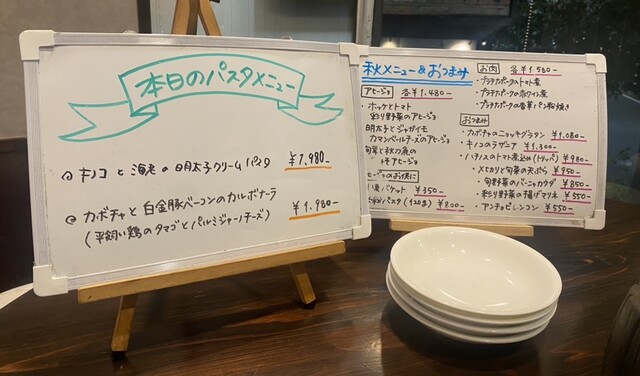 本日のパスタメニュー
キノコと海老の明太子クリームパスタ ¥1,980-
カボチャと白金豚ベーコンのカルボナーラ ¥1,980-
(平飼い鶏のタマゴとパルミジャーノチーズ)
秋メニュー&おつまみ
アヒージョ 各¥1,480-
・ホッケとトマト
彩り野菜のアヒージョ
明太子とジャガイモ
カマンベールチーズのアヒージョ
お供に
バケット ¥350-
パスタ(120g) ¥800-
お肉 各¥1,580-
・プラチナポークのトマト煮
・プラチナポークのホワイト煮
・プラチナポークの香草パン粉焼き
おつまみ
・カボチャのニョッキグラタン ¥1,080-
・キノコのラザニア ¥1,300-
・ハチノスのトマト煮込み(トリッパ) ¥980-
・メヒカリと旬菜の天ぷら ¥950-
・旬野菜のバーニャカウダ ¥850-
・彩り野菜の揚げマリネ ¥550-
・アンチョビレンコン ¥550-